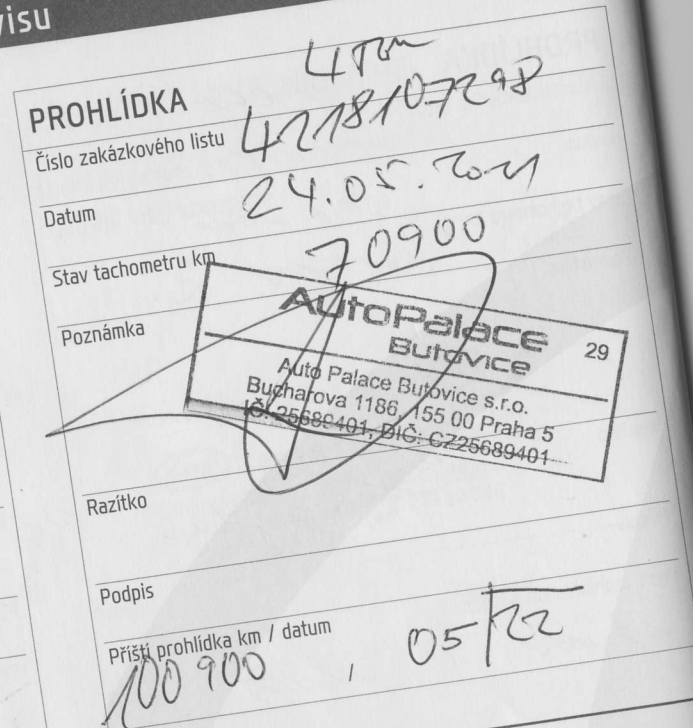 visu
PROHLÍDKA
Číslo zakázkového listu 4218107298
Datum 24.05.2021
Stav tachometru km 70900
Poznámka
AutoPalace
Butovice
29
Auto Palace Butovice s.r.o.
Bucharova 1186, 155 00 Praha 5
IČ: 25689401, DIČ: CZ25689401
Razítko
Podpis
Příští prohlídka km / datum
100 900 / 05/22